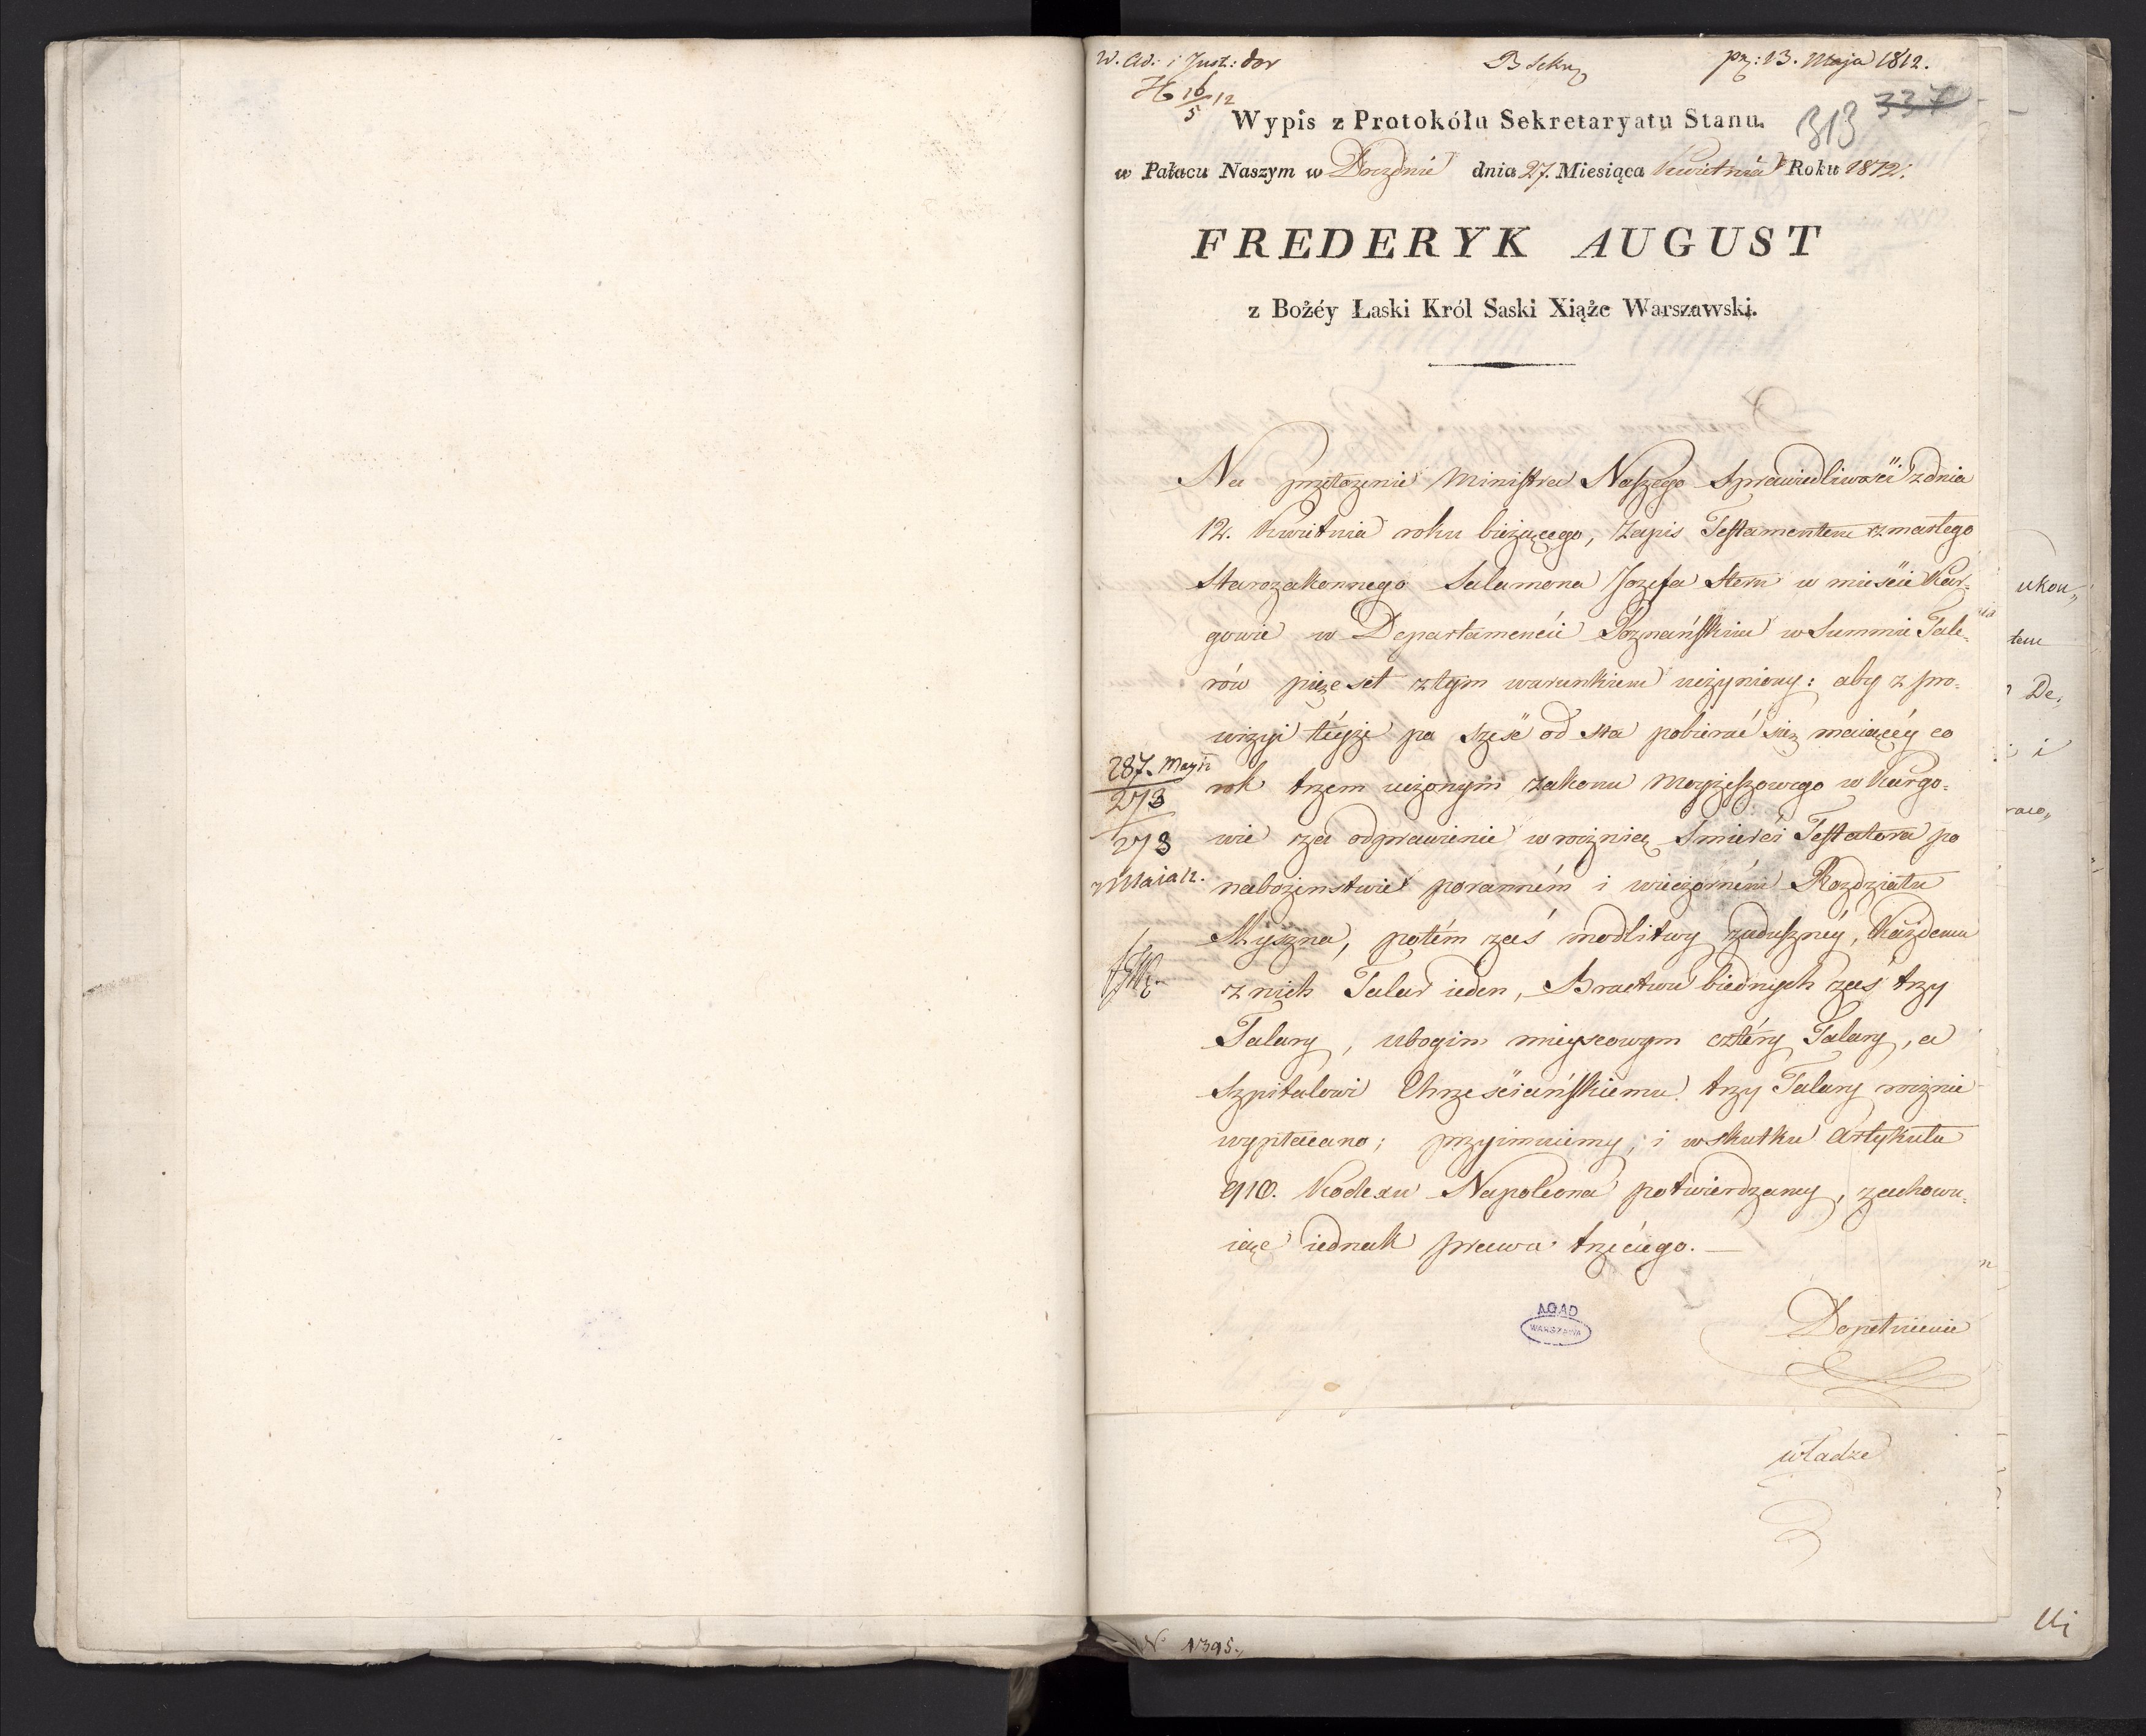 W. Ad: i Just: dor
B Sekr
pr: 13. Maja 1812.
H 16/5 12
Wypis z Protokółu Sekretaryatu Stanu.
313 337
w Pałacu Naszym w Dreznie dnia 27. Miesiąca Kwietnia Roku 1812.
FREDERYK AUGUST
z Bożéy Łaski Król Saski Xiąże Warszawski.
Na przełożenie Ministra Naszego Sprawiedliwości z dnia
12. Kwietnia roku bieżącego, Zapis Testamentem zmarłego
Starozakonnego Salamona Jozefa Stern w mieście Kar-
gowie w Departamencie Poznańskim w Summie Tale-
rów pięćset z tym warunkiem uczyniony: aby z pro-
wizyi téyże po sześć od sta pobierać się maiącéy co
rok trzem uczonym zakonu Moyżeszowego w Kargo-
wie za odprawienie w rocznicę Smierci Testatora po
nabożenstwie poranném i wieczorném Rozdziału
Myszna, potém zaś modlitwy zaduszney, każdemu
z nich Talar ieden, Bractwu biednych zaś trzy
Talary, ubogim mieyscowym cztéry Talary, a
Szpitalowi Chrześciańskiemu trzy Talary rocznie
wypłacano; przyimuiemy, i w skutku Artykułu
910. Kodexu Napoleona potwierdzamy, zachowu-
iąc iednak prawa trzeciego.
287. May 12
273
273
Maia 12.
Dopełnienie
AGAD
WARSZAWA
władze
ukon„
tem
De.
i
N. 1395.